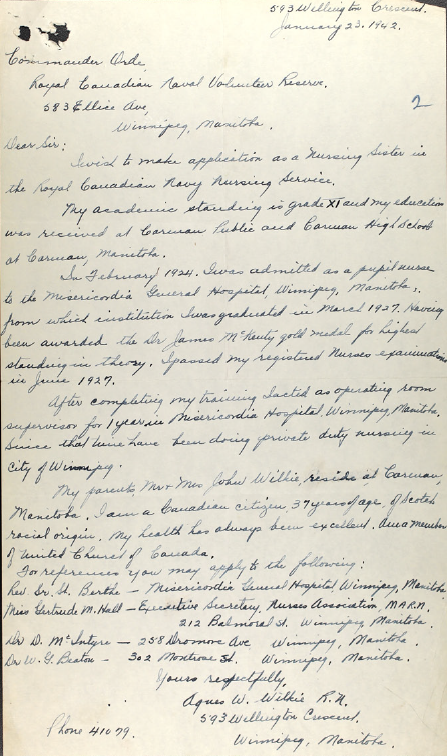 593 Wellington Crescent.
January 23. 1942.
Commander Orde,
Royal Canadian Naval Volunteer Reserve.
583 Ellice Ave,
2
Winnipeg, Manitoba.
Dear Sir:
I wish to make application as a Nursing Sister in
the Royal Canadian Navy Nursing Service.
My academic standing is grade XI and my education
was received at Carman Public and Carman High School
at Carman, Manitoba.
In February 1924. I was admitted as a pupil nurse
to the Misericordia General Hospital, Winnipeg, Manitoba;
from which institution I was graduated in March 1927. Having
been awarded the Dr James McKenty gold medal for highest
standing in theory. I passed my registered Nurses examinations
in June 1927.
After completing my training I acted as operating room
supervisor for 1 year in Misericordia Hospital, Winnipeg, Manitoba.
Since that time have been doing private duty nursing in
City of Winnipeg.
My parents, Mr & Mrs John Wilkie reside at Carman,
Manitoba. I am a Canadian citizen, 37 years of age, of Scotch
racial origin. My health has always been excellent. Am a member
of United Church of Canada.
For references you may apply to the following:
Rev. Sr. St. Berthe — Misericordia General Hospital, Winnipeg, Manitoba
Miss Gertrude M. Hall — Executive Secretary, Nurses Association, M.A.R.N.
212 Balmoral St. Winnipeg, Manitoba.
Dr D. McIntyre — 258 Dromore Ave Winnipeg, Manitoba.
Dr W. G. Beaton — 302 Montrose St. Winnipeg, Manitoba.
Yours respectfully,
Agnes W. Wilkie R.N.
593 Wellington Crescent.
Phone 41079.
Winnipeg, Manitoba.